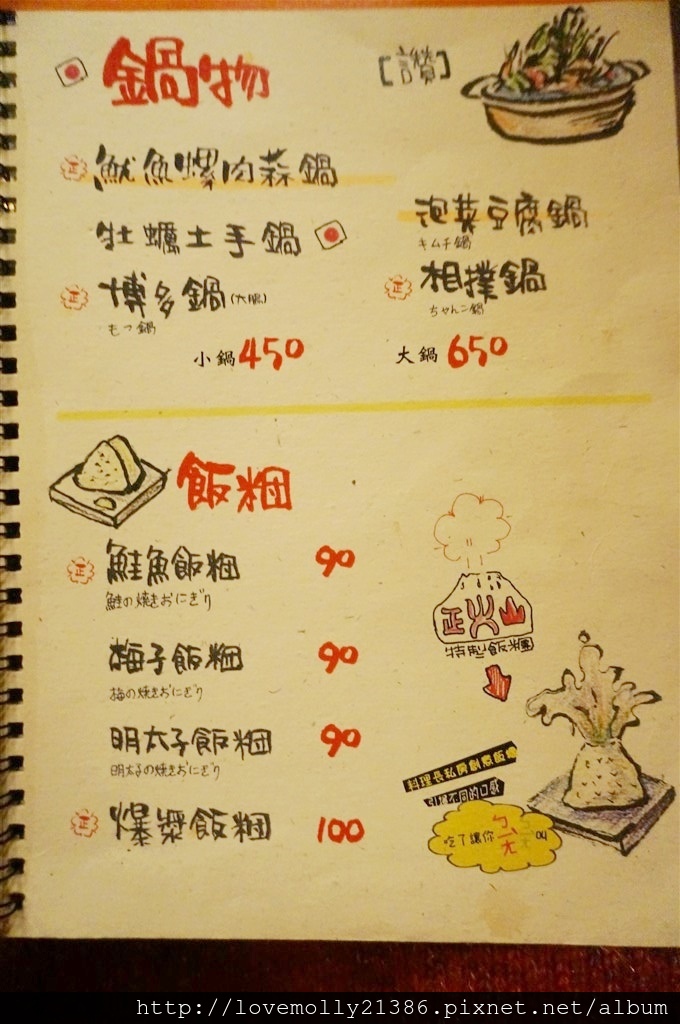 鍋物
[讚]
正 魷魚螺肉蒜鍋
泡菜豆腐鍋
キムチ鍋
牡蠣土手鍋
正 博多鍋(大腸)
もつ鍋
正 相撲鍋
ちゃんこ鍋
小鍋450
大鍋650
飯糰
正 鮭魚飯糰 90
鮭の焼きおにぎり
梅子飯糰 90
梅の焼きおにぎり
明太子飯糰 90
明太子の焼きおにぎり
正 爆漿飯糰 100
正火山
特製飯糰
料理長私房創意飯糰
引爆不同的口感
吃了讓你
http://lovemolly21386.pixnet.net/album